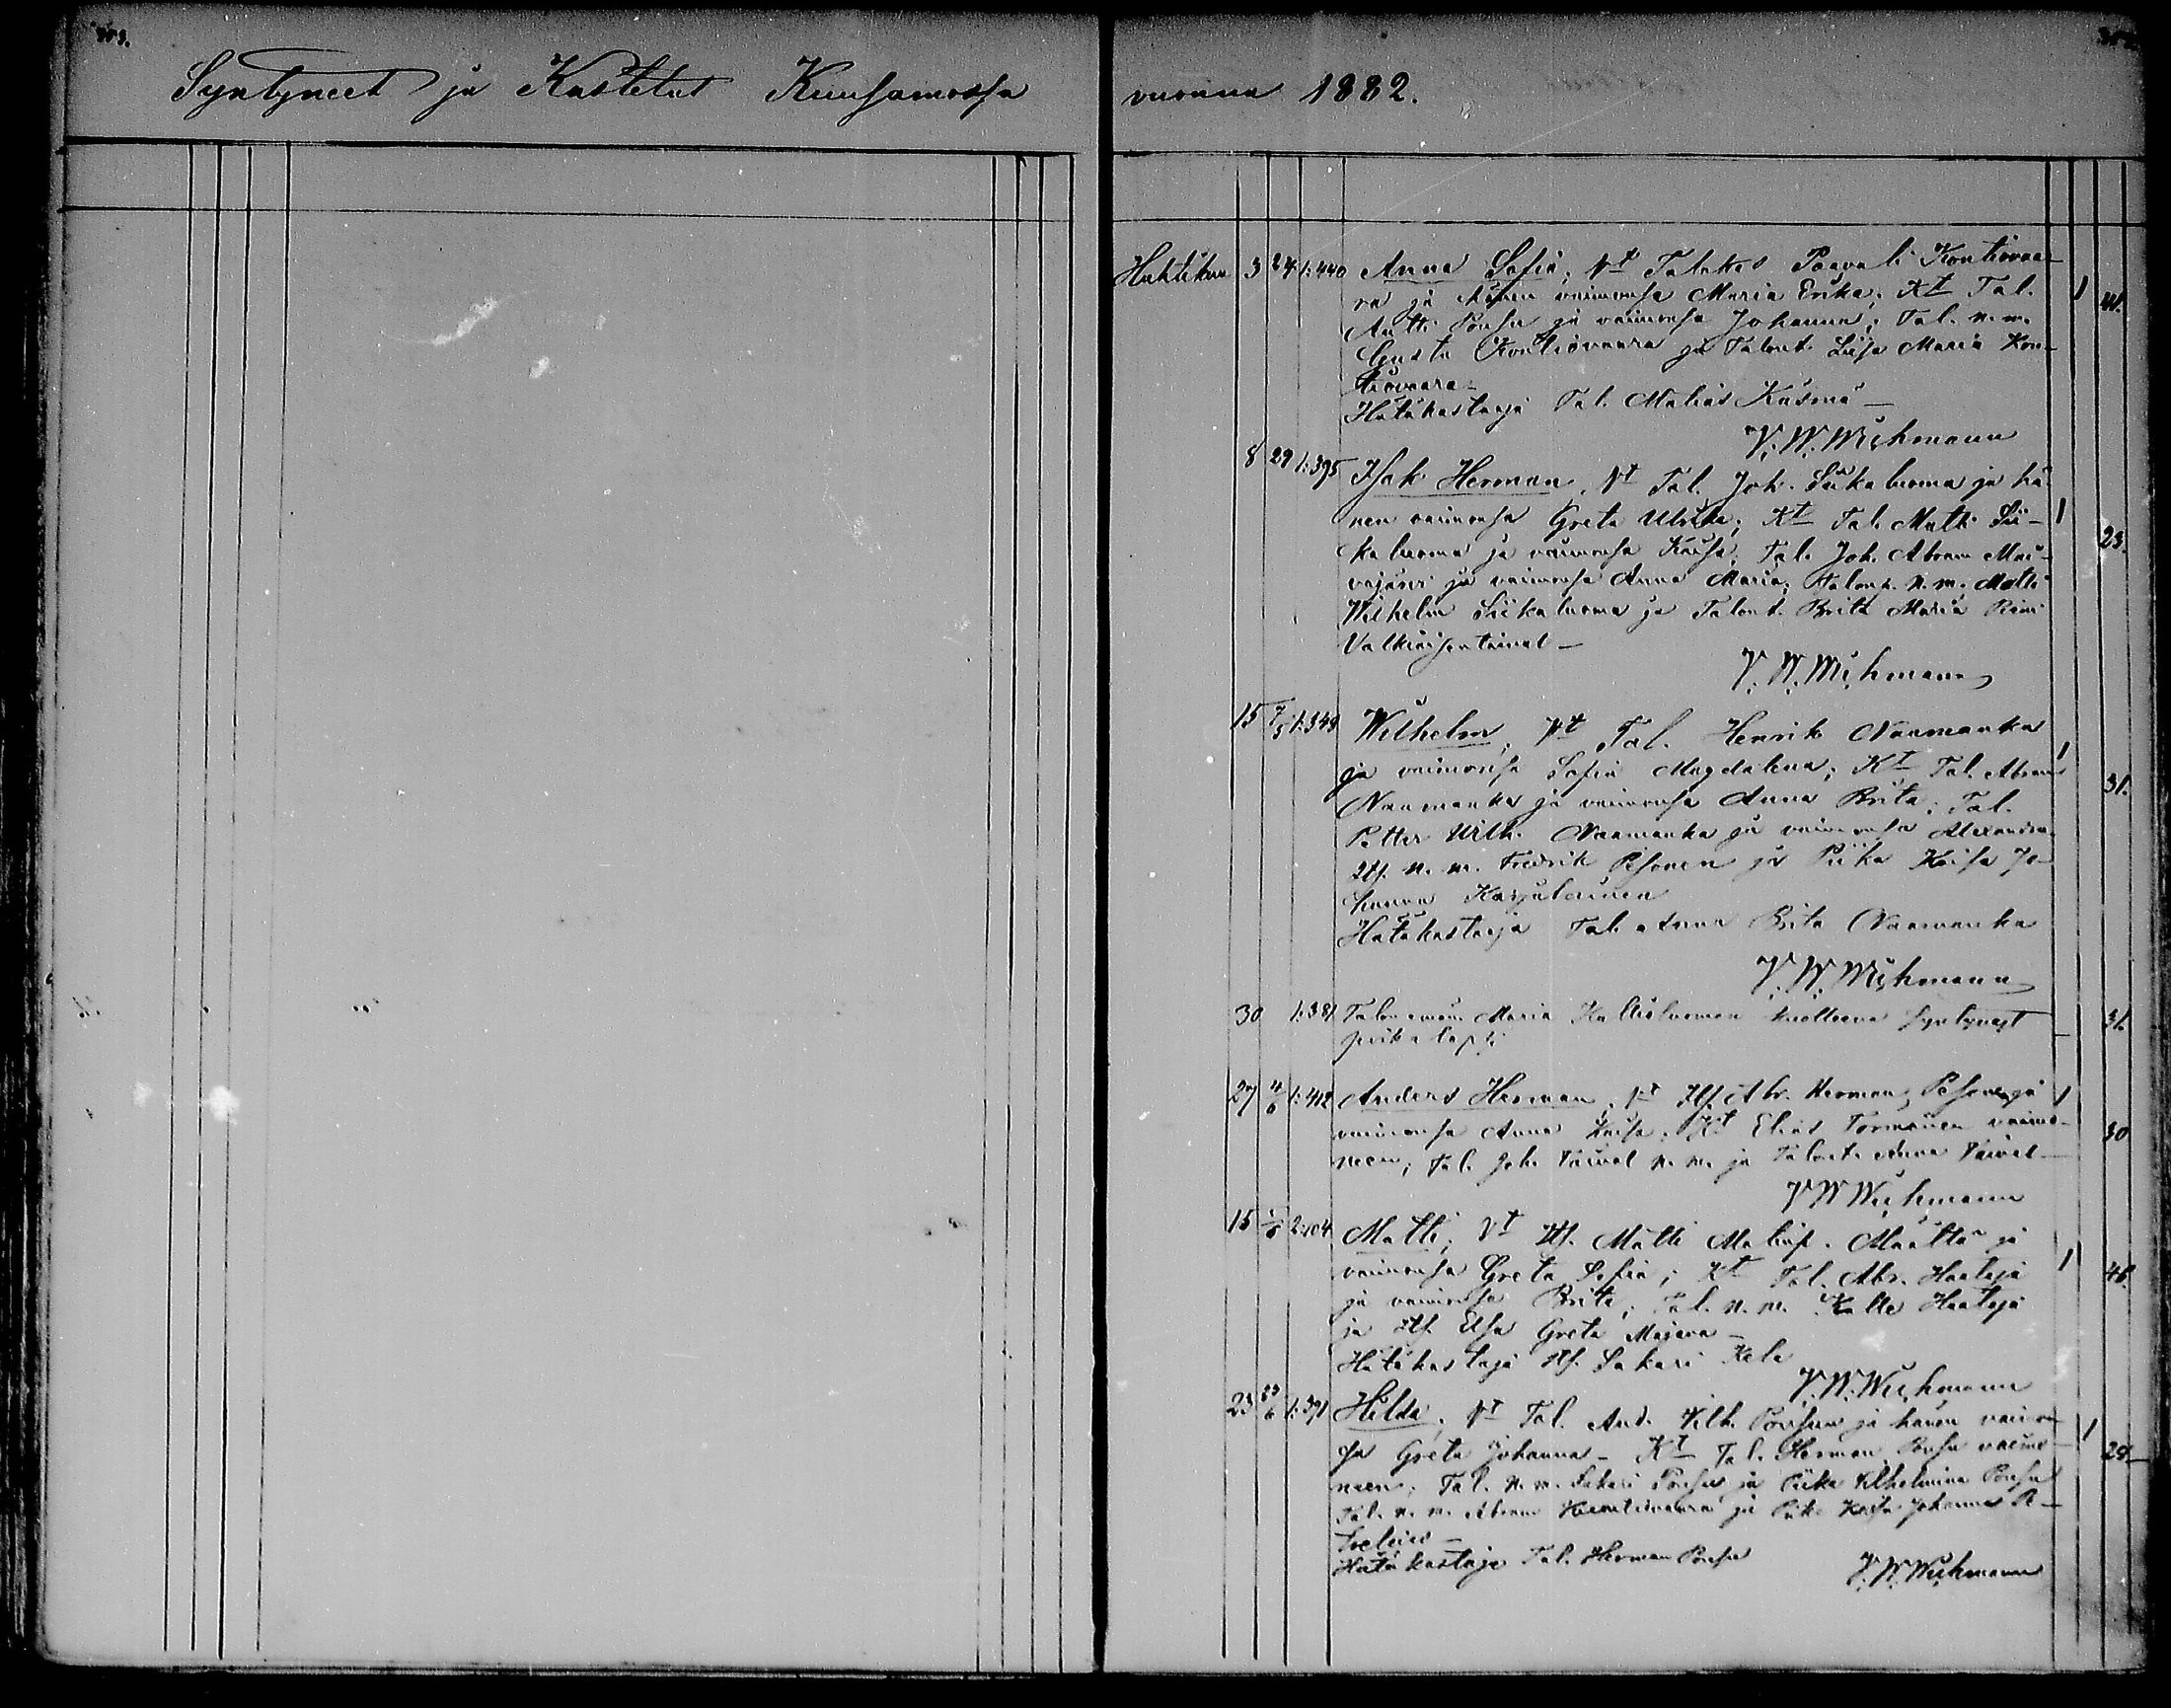 Syntyneet ja Kastetut Kuusamossa vuonna 1882.
Huhtikuu 3 24 1:440 Anna Sofia, Vt Talokas Paavali Kontiovaa-
ra ja hänen vaimonsa Maria Erika; Kt Tal.
Antti Pousu ja vaimonsa Johanna; Tal. n.m.
Gusta Kontiovaara ja Talont. Liisa Maria Kon-
tiovaara - 41.
Hätäkastaja Tal. Matias Käsmä -
V. W. Wichmann
8 29 1:395 Isak Herman, Vt Tal. Joh. Siikaluoma ja hä-
nen vaimonsa Greta Ulrika; Kt Tal. Matti Sii-
kaluoma ja vaimonsa Kaisa; Tal. Joh. Abram Mai-
vajärvi ja vaimonsa Anna Maria; Talont. n.m. Matti
Wilhelm Siikaluoma ja Talont. Brita Maria
Valkiaisentaival - 23.
V. W. Wichmann
15 7/5 1:349 Wilhelm, Vt Tal. Henrik Naamanka
ja vaimonsa Sofia Magdalena; Kt Tal. Abram
Naamanka ja vaimonsa Anna Brita; Tal.
Petter Wilh. Naamanka ja vaimonsa Alexandra
Its. n.m. Fredrik Pesonen ja Piika Kaisa Jo-
hanna Karjalainen 31.
Hätäkastaja Tal. Anna Brita Naamanka
V. W. Wichmann
30 1:381 Talonemän Maria Kallioluoman kuolleena syntynyt
poikalapsi 31.
27 4/6 1:412 Anders Herman, Vt Its. Abr. Herman Pesonen ja
vaimonsa Anna Kaisa; Kt Elias Tormänen vaimo-
neen; Tal. Joh. Taival n.m. ja Talont. Anna Taival - 30
V W Wichmann
15 /6 2:104 Matti; Vt Its. Matti Matinp. Määttä ja
vaimonsa Greta Sofia; Kt Tal. Abr. Haataja
ja vaimonsa Brita; Tal. n.m. Kalle Haataja
ja Its. Elsa Greta Majava - 46.
Hätäkastaja Its. Sakari Kela
V. W. Wichmann
23 /6 1:391 Hilda, Vt Tal. And. Vilh. Pousu ja hänen vaimon-
sa Greta Johanna - Kt Tal. Herman Pousu vaimo-
neen; Tal. n.m. Sakari Pousu ja Piika Vilhelmina Pousu
Tal. n.m. Abram Kontiovaara ja Piika Kaisa Johanna 28
Hätäkastaja Tal. Herman Pousu
V. W. Wichmann